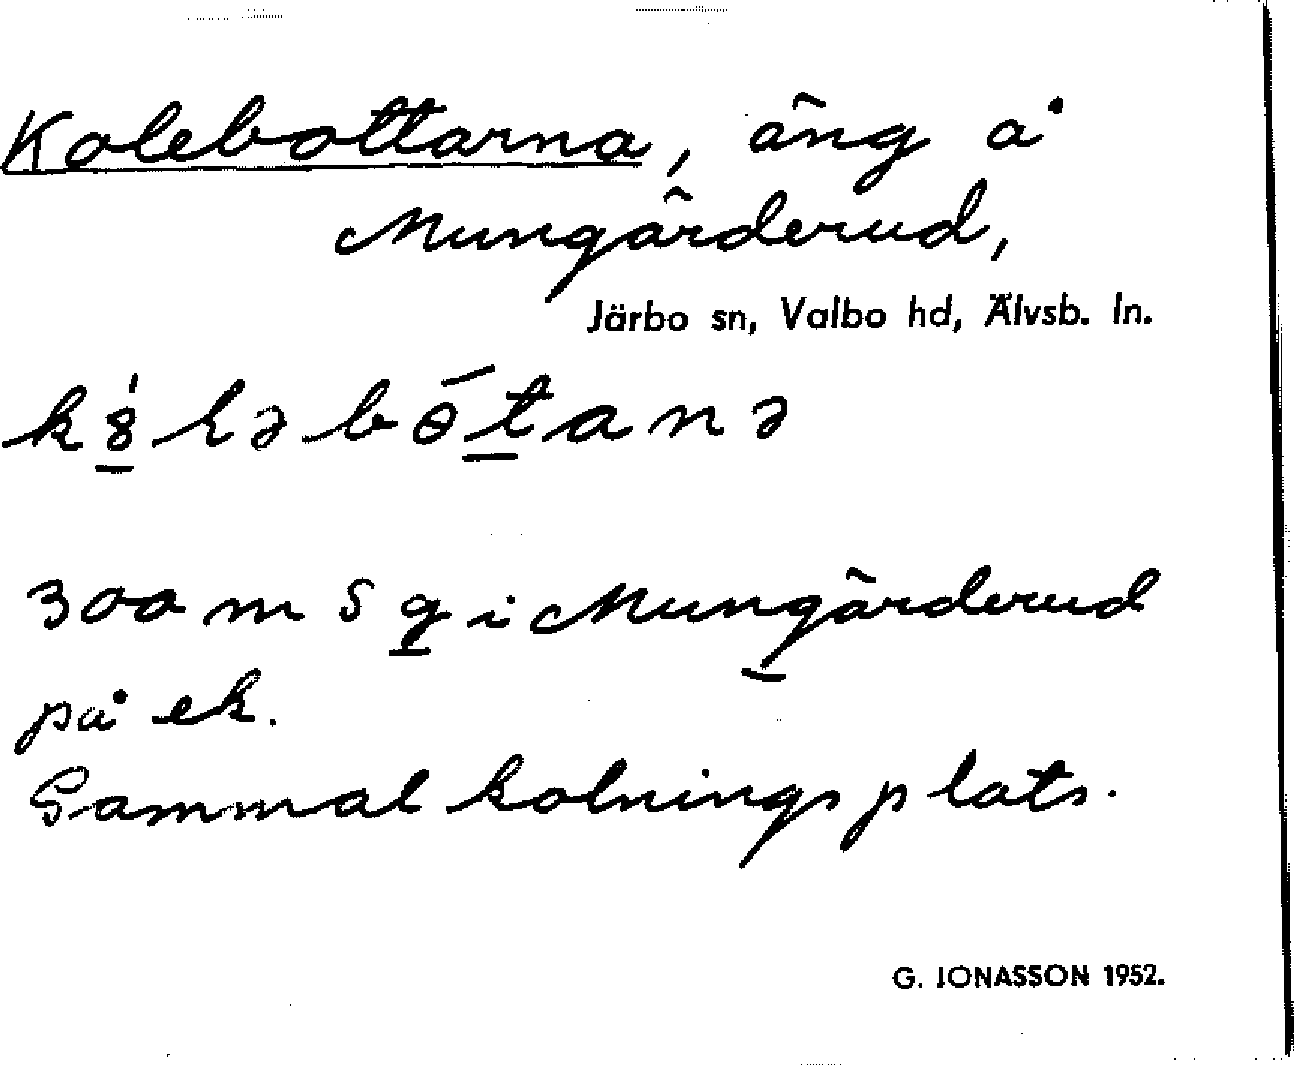 Kolebottarna, äng å
Mungärderud,
Järbo sn, Valbo hd, Älvsb. ln.
300 m S g i Mungärderud
på ek.
Gammal kolningsplats.
G. JONASSON 1952.